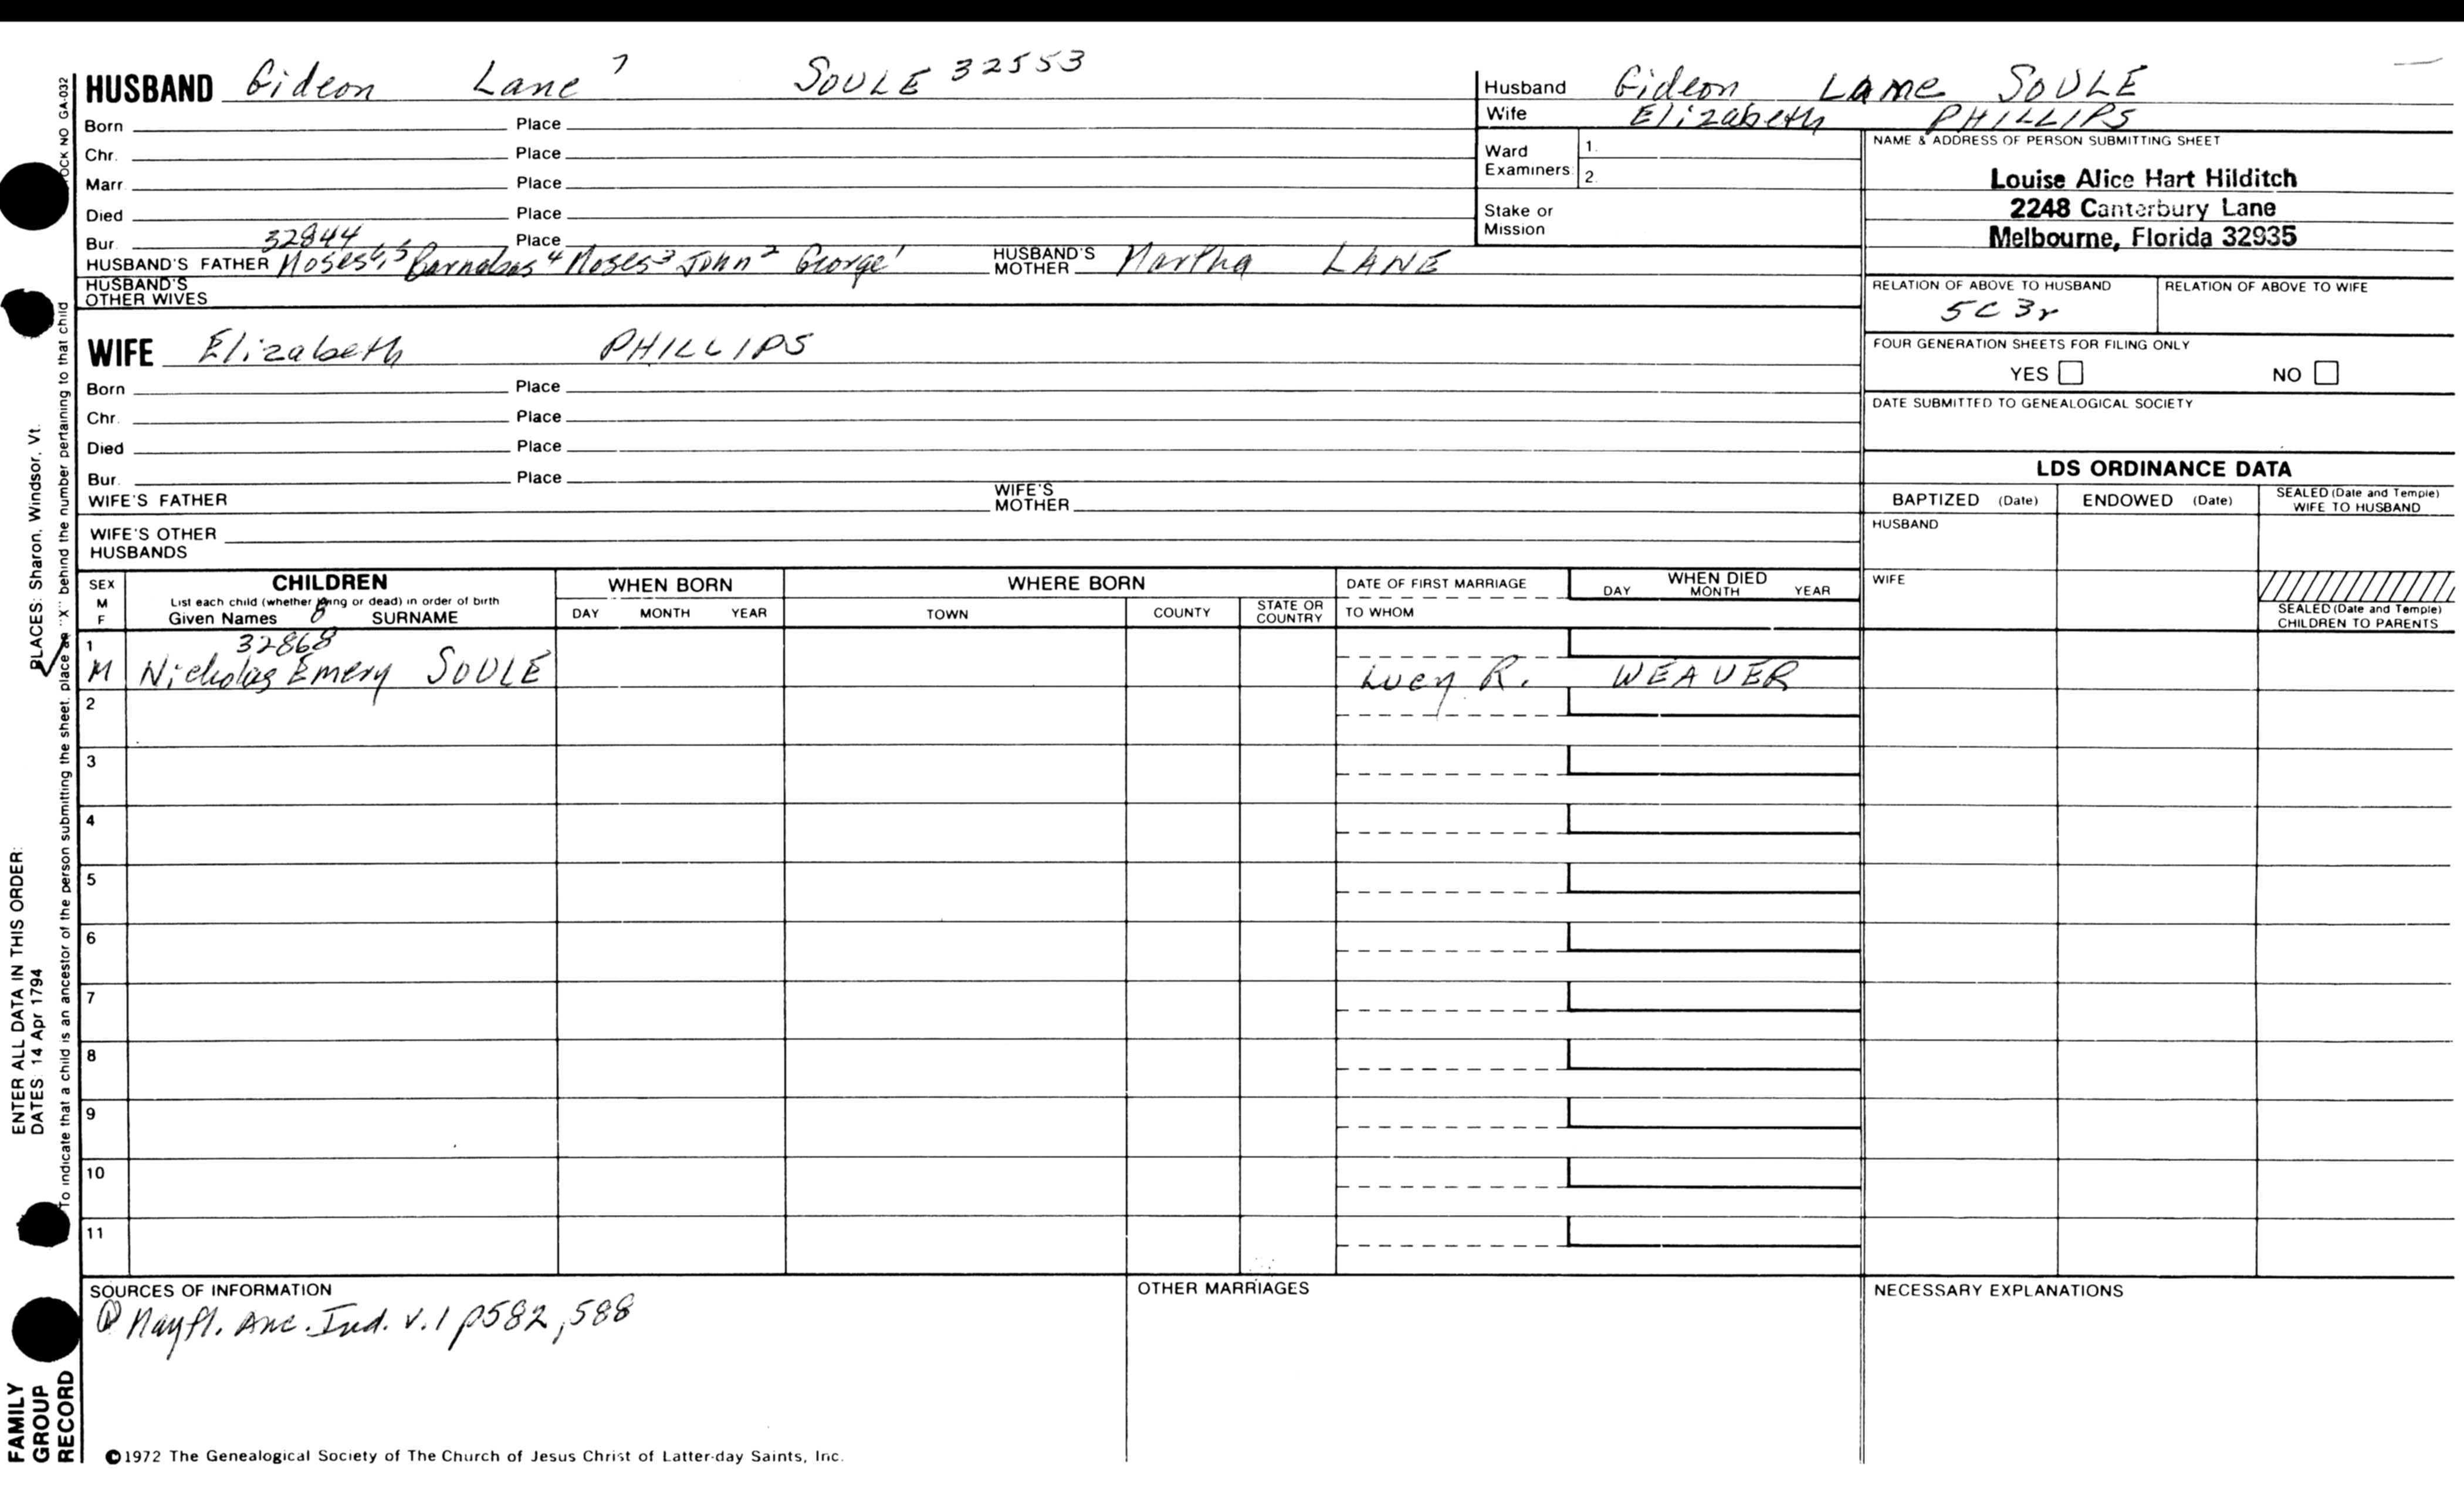 HUSBAND Gideon Lane 7 SOULE 32553
Born Place
Chr. Place
Marr. Place
Died Place
Bur. 32844 Place
HUSBAND'S FATHER Moses 6, 5 Barnabas 4 Moses 3 John 2 George 1 HUSBAND'S MOTHER Martha LANE
HUSBAND'S OTHER WIVES
WIFE Elizabeth PHILLIPS
Born Place
Chr. Place
Died Place
Bur. Place
WIFE'S FATHER WIFE'S MOTHER
WIFE'S OTHER HUSBANDS
Husband Gideon Lane SOULE
Wife Elizabeth PHILLIPS
Ward Examiners 1.
2.
Stake or Mission
NAME & ADDRESS OF PERSON SUBMITTING SHEET
Louise Alice Hart Hilditch
2248 Canterbury Lane
Melbourne, Florida 32935
RELATION OF ABOVE TO HUSBAND RELATION OF ABOVE TO WIFE
5C 3r
FOUR GENERATION SHEETS FOR FILING ONLY
YES NO
DATE SUBMITTED TO GENEALOGICAL SOCIETY
LDS ORDINANCE DATA
BAPTIZED (Date) ENDOWED (Date) SEALED (Date and Temple) WIFE TO HUSBAND
HUSBAND
WIFE
SEALED (Date and Temple) CHILDREN TO PARENTS
SEX M F
CHILDREN
List each child (whether living or dead) in order of birth
Given Names 8 SURNAME
WHEN BORN
DAY MONTH YEAR
WHERE BORN
TOWN COUNTY STATE OR COUNTRY
DATE OF FIRST MARRIAGE
TO WHOM
WHEN DIED
DAY MONTH YEAR
1 32868
M Nicholas Emery SOULE Lucy R. WEAVER
2
3
4
5
6
7
8
9
10
11
SOURCES OF INFORMATION
Mayfl. Anc. Ind. v.1 p582, 588
OTHER MARRIAGES
NECESSARY EXPLANATIONS
©1972 The Genealogical Society of The Church of Jesus Christ of Latter-day Saints, Inc.
FAMILY GROUP RECORD
ENTER ALL DATA IN THIS ORDER:
DATES: 14 Apr 1794
PLACES: Sharon, Windsor, Vt.
To indicate that a child is an ancestor of the person submitting the sheet, place an "X" behind the number pertaining to that child
NO GA-032